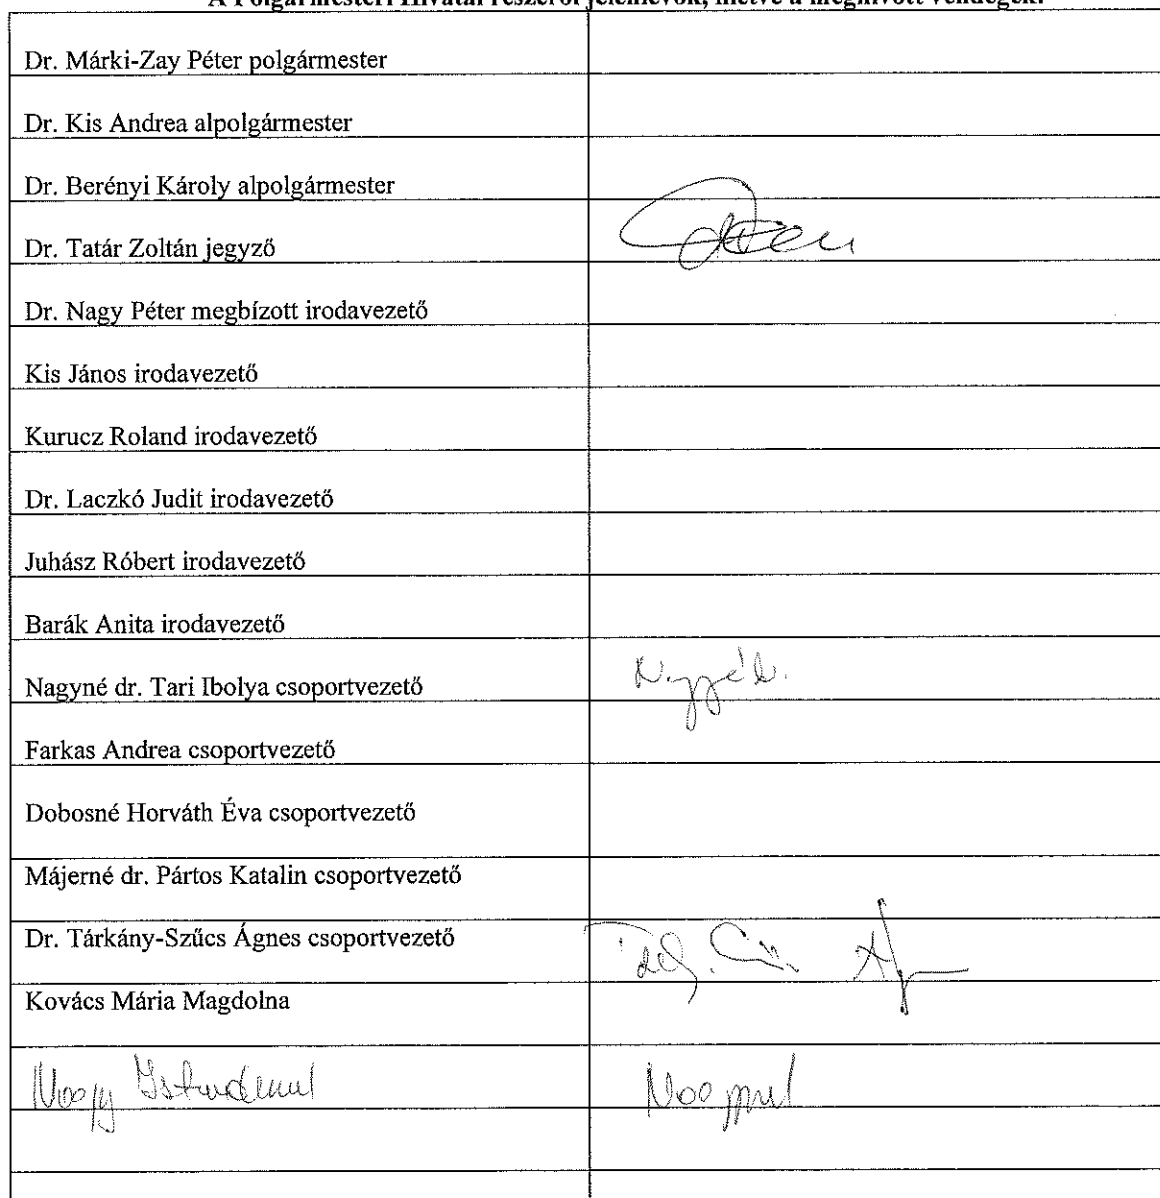 A Polgármesteri Hivatal részéről jelenlévők, illetve a meghívott vendégek:
Dr. Márki-Zay Péter polgármester
Dr. Kis Andrea alpolgármester
Dr. Berényi Károly alpolgármester
Dr. Tatár Zoltán jegyző
Dr. Nagy Péter megbízott irodavezető
Kis János irodavezető
Kurucz Roland irodavezető
Dr. Laczkó Judit irodavezető
Juhász Róbert irodavezető
Barák Anita irodavezető
Nagyné dr. Tari Ibolya csoportvezető
Farkas Andrea csoportvezető
Dobosné Horváth Éva csoportvezető
Májerné dr. Pártos Katalin csoportvezető
Dr. Tárkány-Szűcs Ágnes csoportvezető
Kovács Mária Magdolna
Nagy